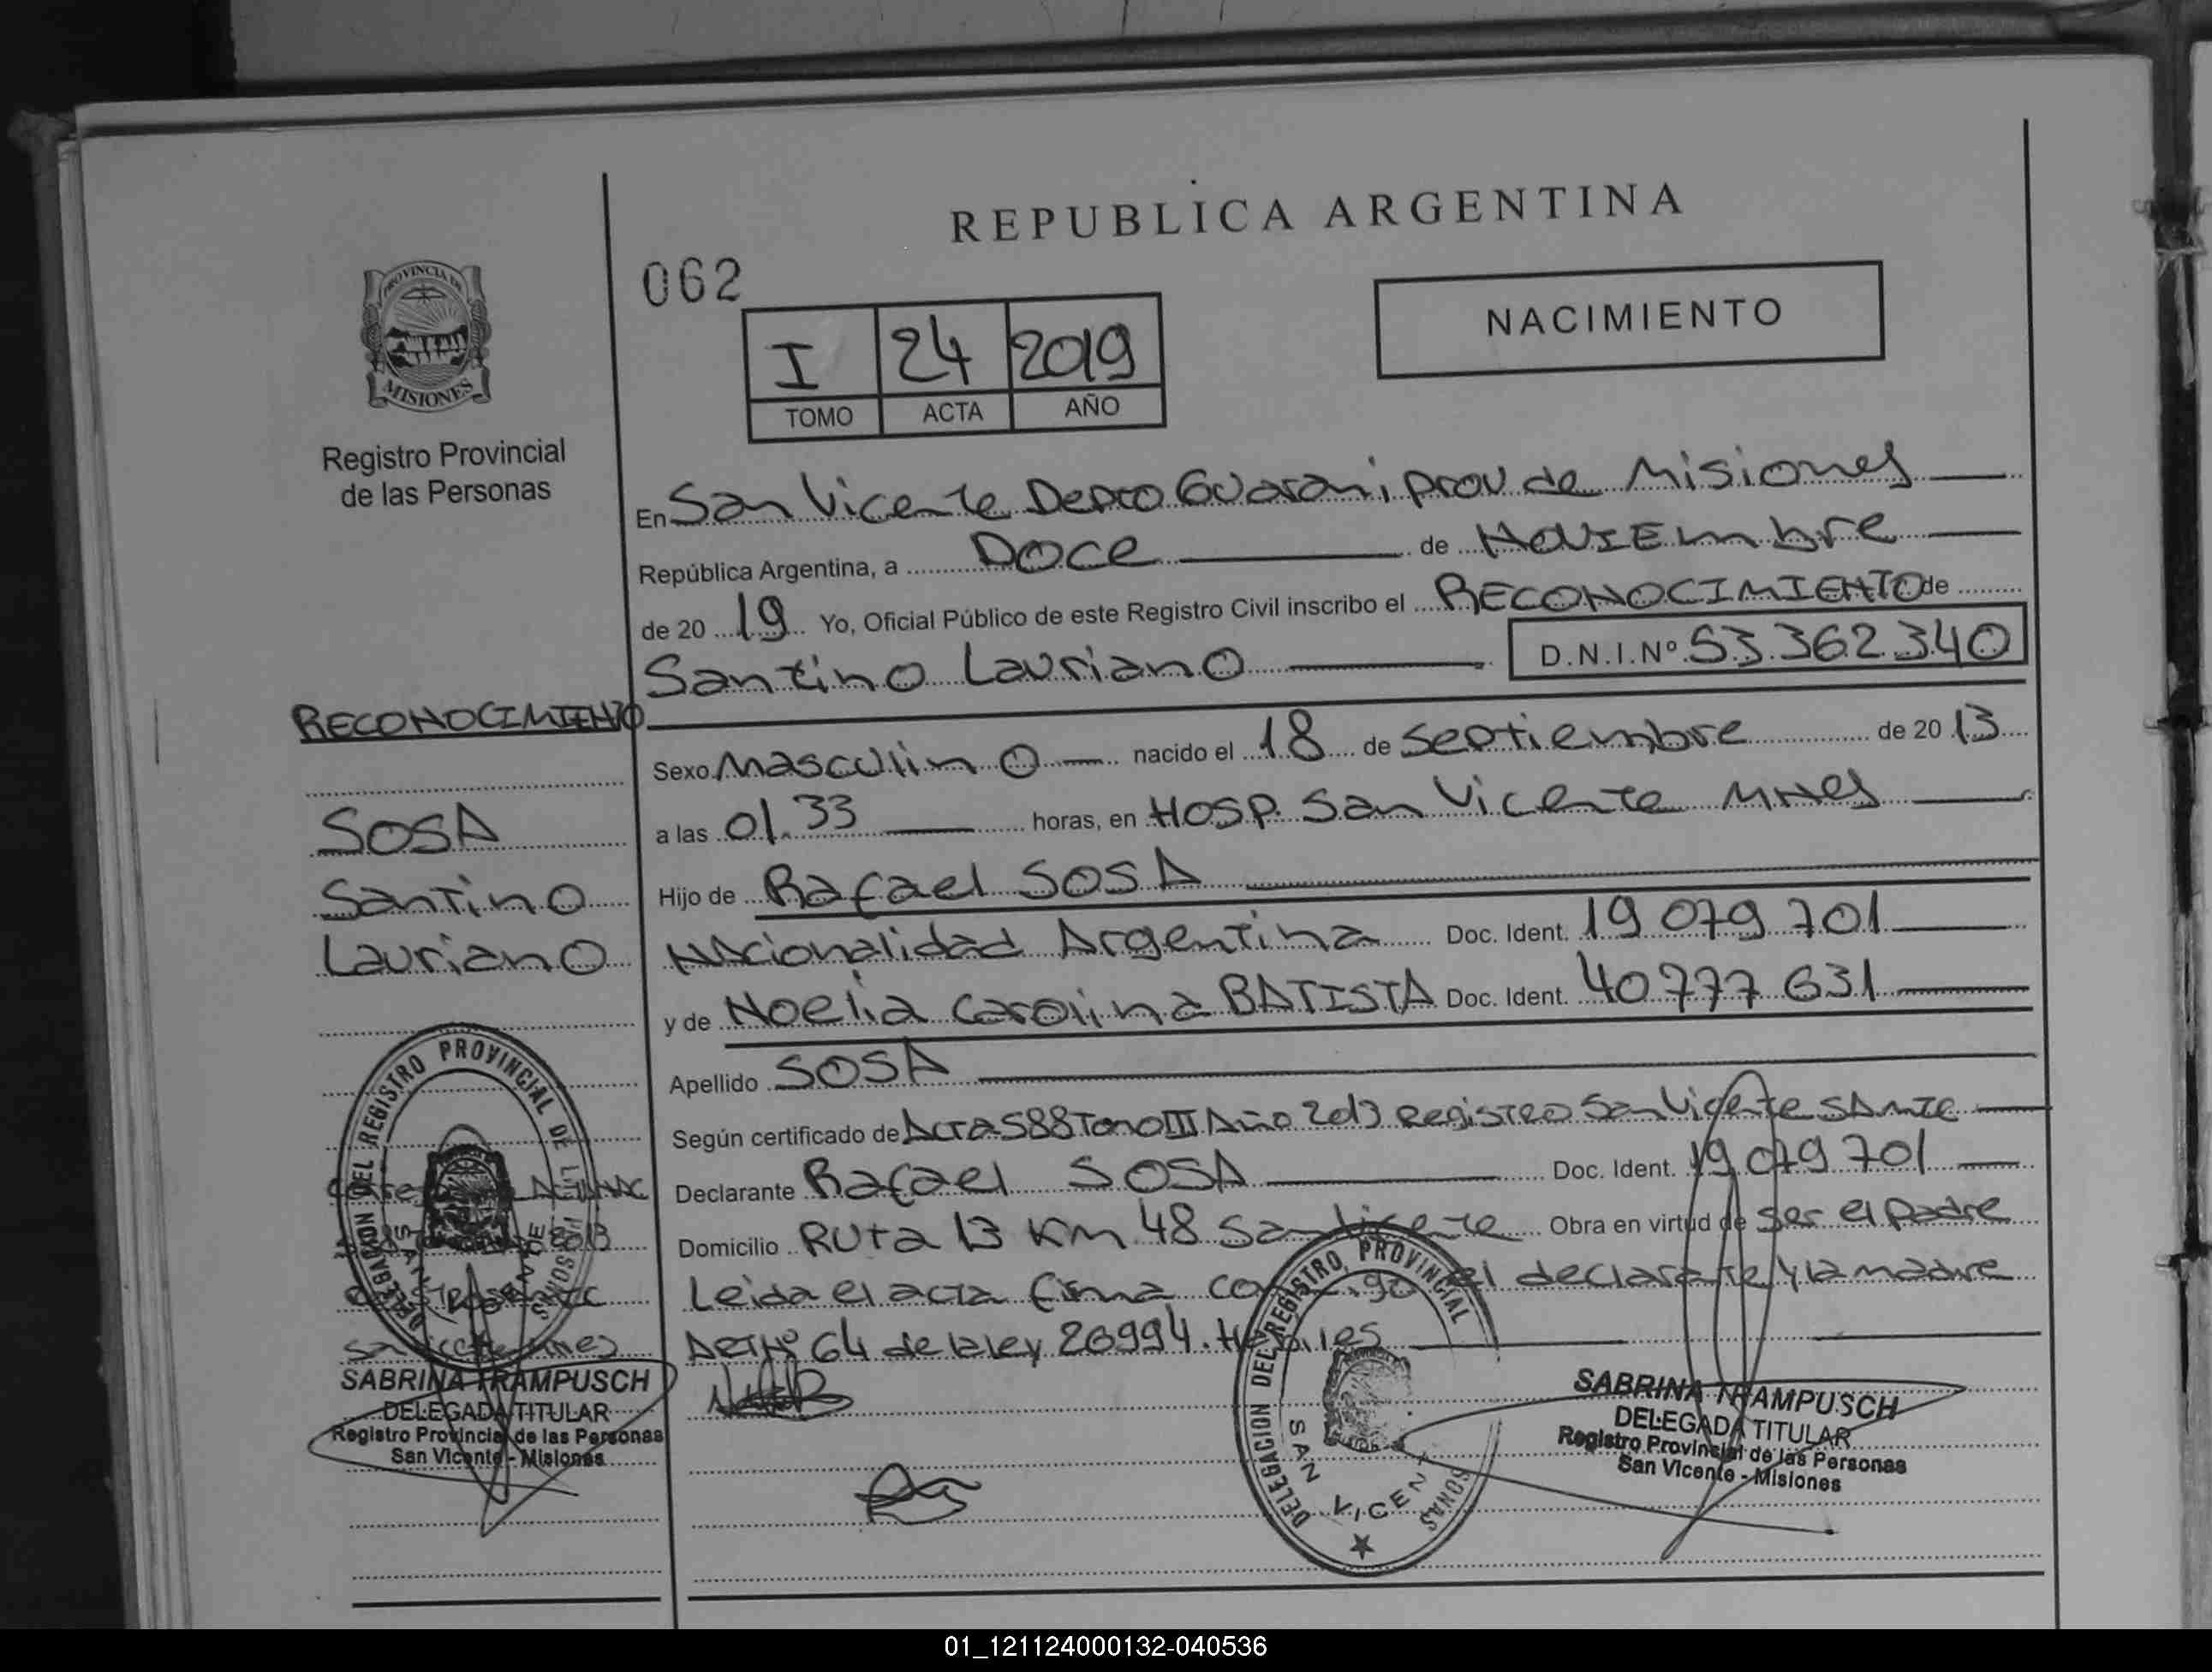 REPUBLICA ARGENTINA
062
NACIMIENTO
I 24 2019
TOMO ACTA AÑO
PROVINCIA DE
MISIONES
Registro Provincial
de las Personas
En San Vicente Depto Guarani prov de Misiones
República Argentina, a Doce de NOVIEmbre
de 20 19 Yo, Oficial Público de este Registro Civil inscribo el RECONOCIMIENTO de
Santino Lauriano D.N.I.Nº 53.362.340
RECONOCIMIENTO
Sexo Masculino nacido el 18 de Septiembre de 20 13
SOSA
a las 01.33 horas, en HOSP. San Vicente MNes
Santino
Hijo de Rafael SOSA
Lauriano
Nacionalidad Argentina Doc. Ident. 19 079 701
y de Noelia Carolina BATISTA Doc. Ident. 40777 631
Apellido SOSA
Según certificado de Acta 588 Tomo III Año 2013 Registro San Vicente
Declarante Rafael SOSA Doc. Ident. 19 079 701
Domicilio Ruta 13 Km 48 San Vicente Obra en virtud de ser el padre
Leida el acta firma conmigo el declarante y la madre
Art Nº 64 de la ley 26994.
DELEGACION DEL REGISTRO PROVINCIAL DE
SAN VICENTE
SABRINA TRAMPUSCH
DELEGADA TITULAR
Registro Provincial de las Personas
San Vicente - Misiones
DELEGACION DEL REGISTRO PROVINCIAL
SAN VICENTE
SABRINA TRAMPUSCH
DELEGADA TITULAR
Registro Provincial de las Personas
San Vicente - Misiones
01_121124000132-040536